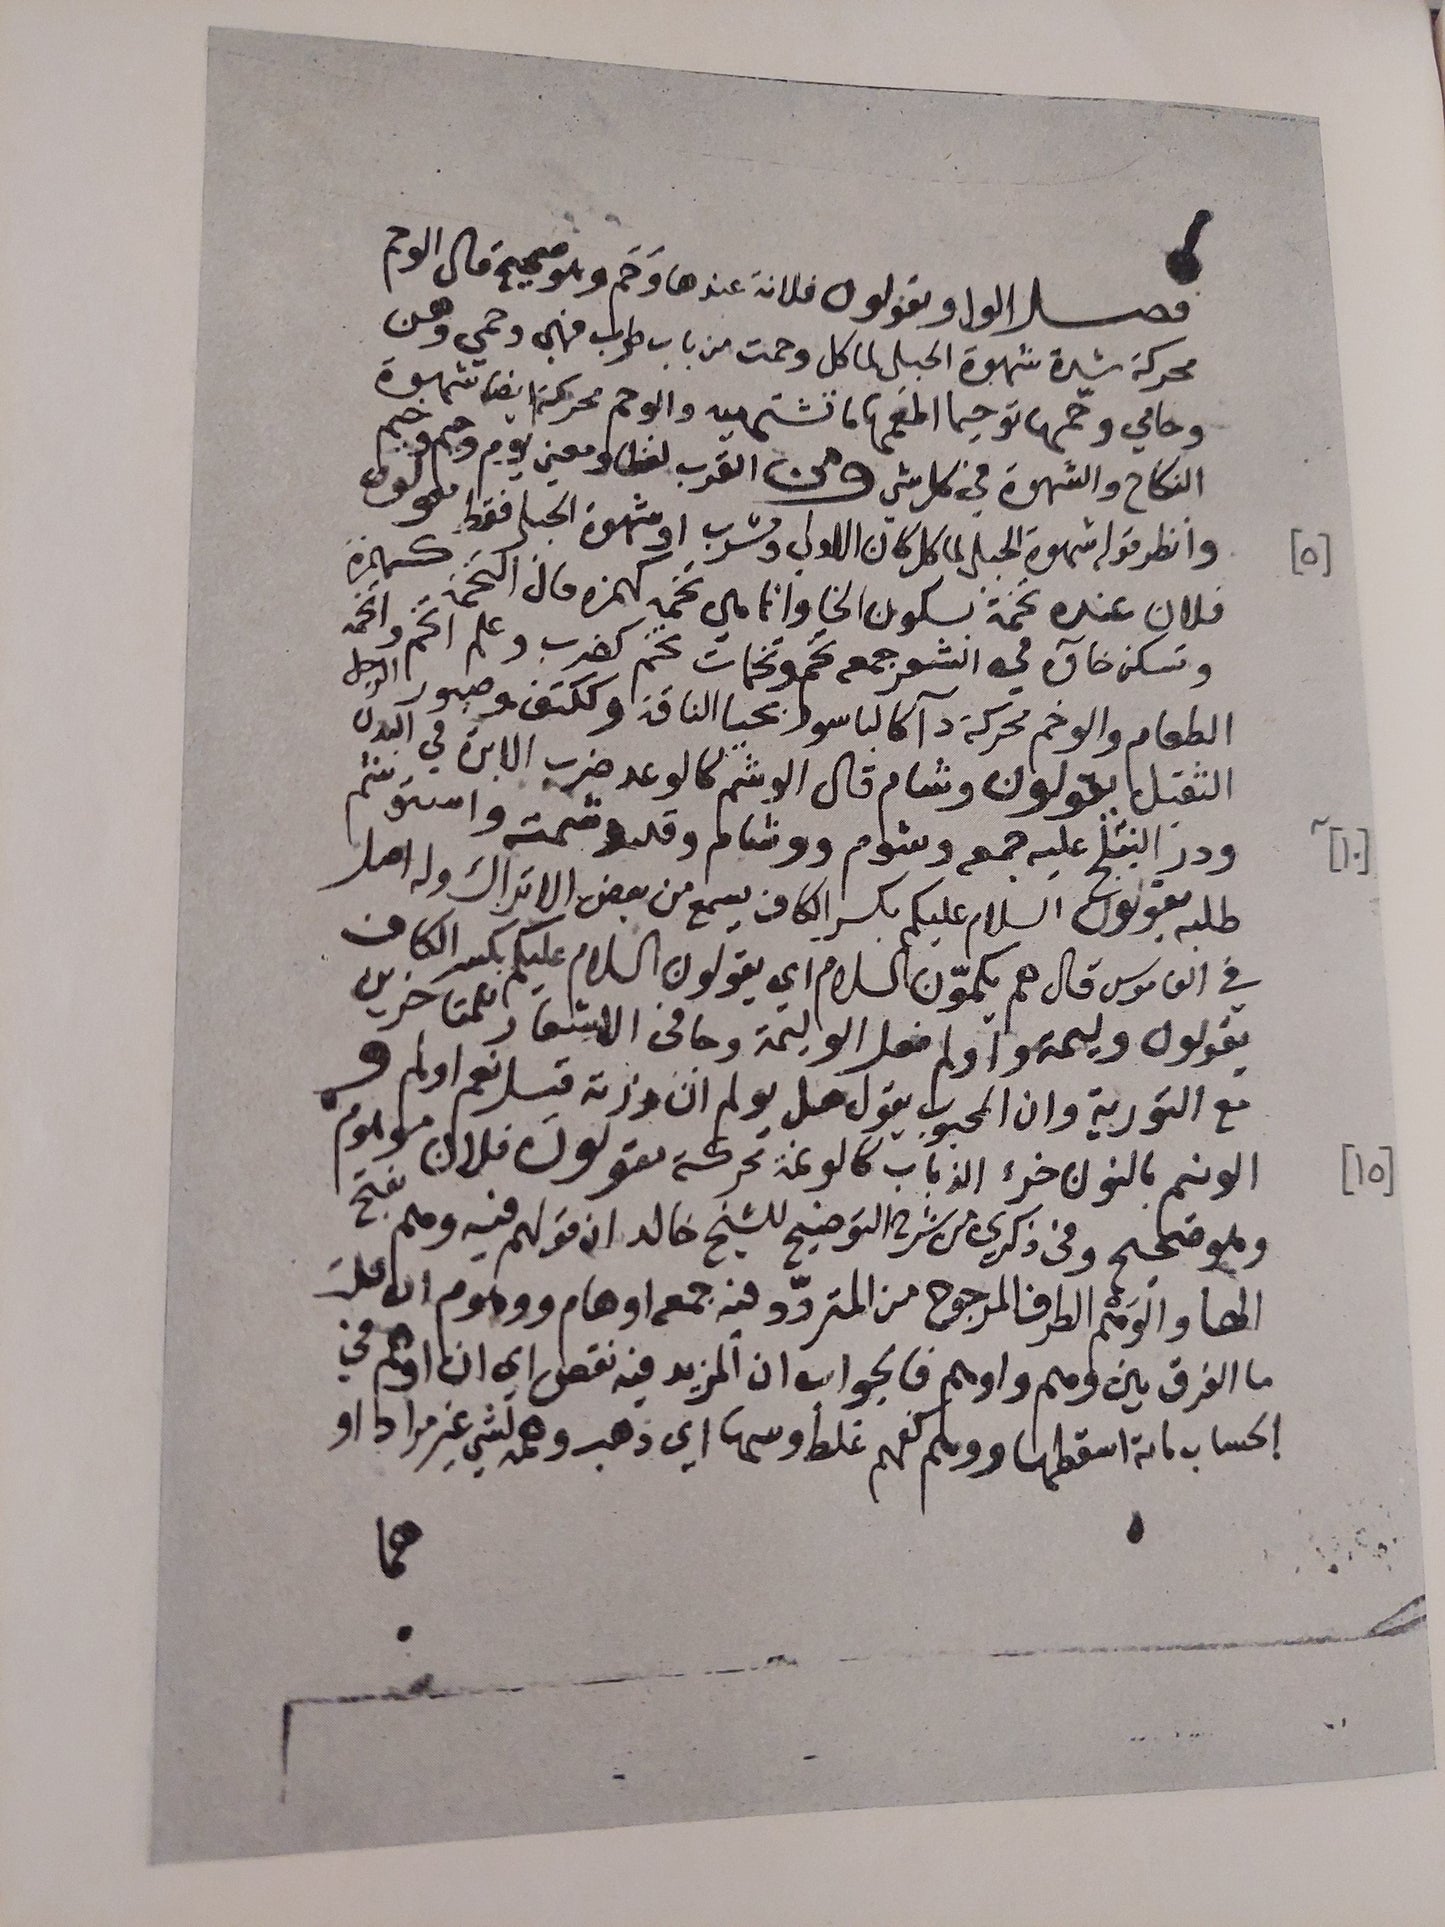 فصل الواو يقولون فلانة عندها وَحَم وهو صحيح قال الوحم
محركة شدة شهوة الحبلى لماكل وحمت من باب طرب فهي وحمى وهن
وحامي ووحّمها توحيما اطعمها ما تشتهيه والوحم محركة ايضا شهوة
النكاح والشهوة في كل شي ومن القرب لفظا ومعنى يوم وحم وخيم
وانظر قوله شهوة الحبلى لماكل كان الاولى ومشرب او شهوة الحبلى فقط يقولون
فلان عنده تخمة بسكون الخا وانما هي تخمه كهمزه قال التخمة كهمزة
وتسكن خاؤه في الشعر جمعه تخم وتخمات تخم كضرب وعلم اتخم واتخمه
الطعام والوخم محركة دآ كالباسور بحيا الناقة وككتف وصبور الرجل
الثقيل يقولون وشام قال الوشم كالوعد ضرب الابرة في البدن
وذر النيلج عليه جمعه وشوم ووشام وقد وشمته واستوشم
طلبه يقولون السلام عليكم بكسر الكاف يسمع من بعض الاتراك وله اصل
في القاموس قال هم يكمّون السلام اي يقولون السلام عليكم بكسر الكاف
يقولون وليمة وأولم فعل الوليمة وجا في الاشعار للمتاخرين
مع التورية وان المحبوب يقول هل يولم ان زرته قيل نعم اولم و
الونيم بالنون خرء الذباب كالونمة محركة يقولون فلان موهوم
وهو صحيح وفي ذكري من شرح التوضيح للشيخ خالد ان قولهم فيه وهم بفتح
الها والوَهْم الطرف المرجوح من المتردّد فيه جمعه اوهام ووهوم ان قلت
ما الفرق بين وهم واوهم فالجواب ان المزيد فيه نقص اي ان اوهم في
الحساب مائة اسقطها ووهم كفهم غلط وسها اي ذهب وهمه لشي غير مراد او
هما
[٥]
[١٠]
[١٥]